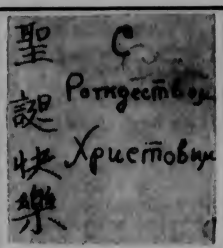 聖誕快樂
С
Рождеством
Христовым